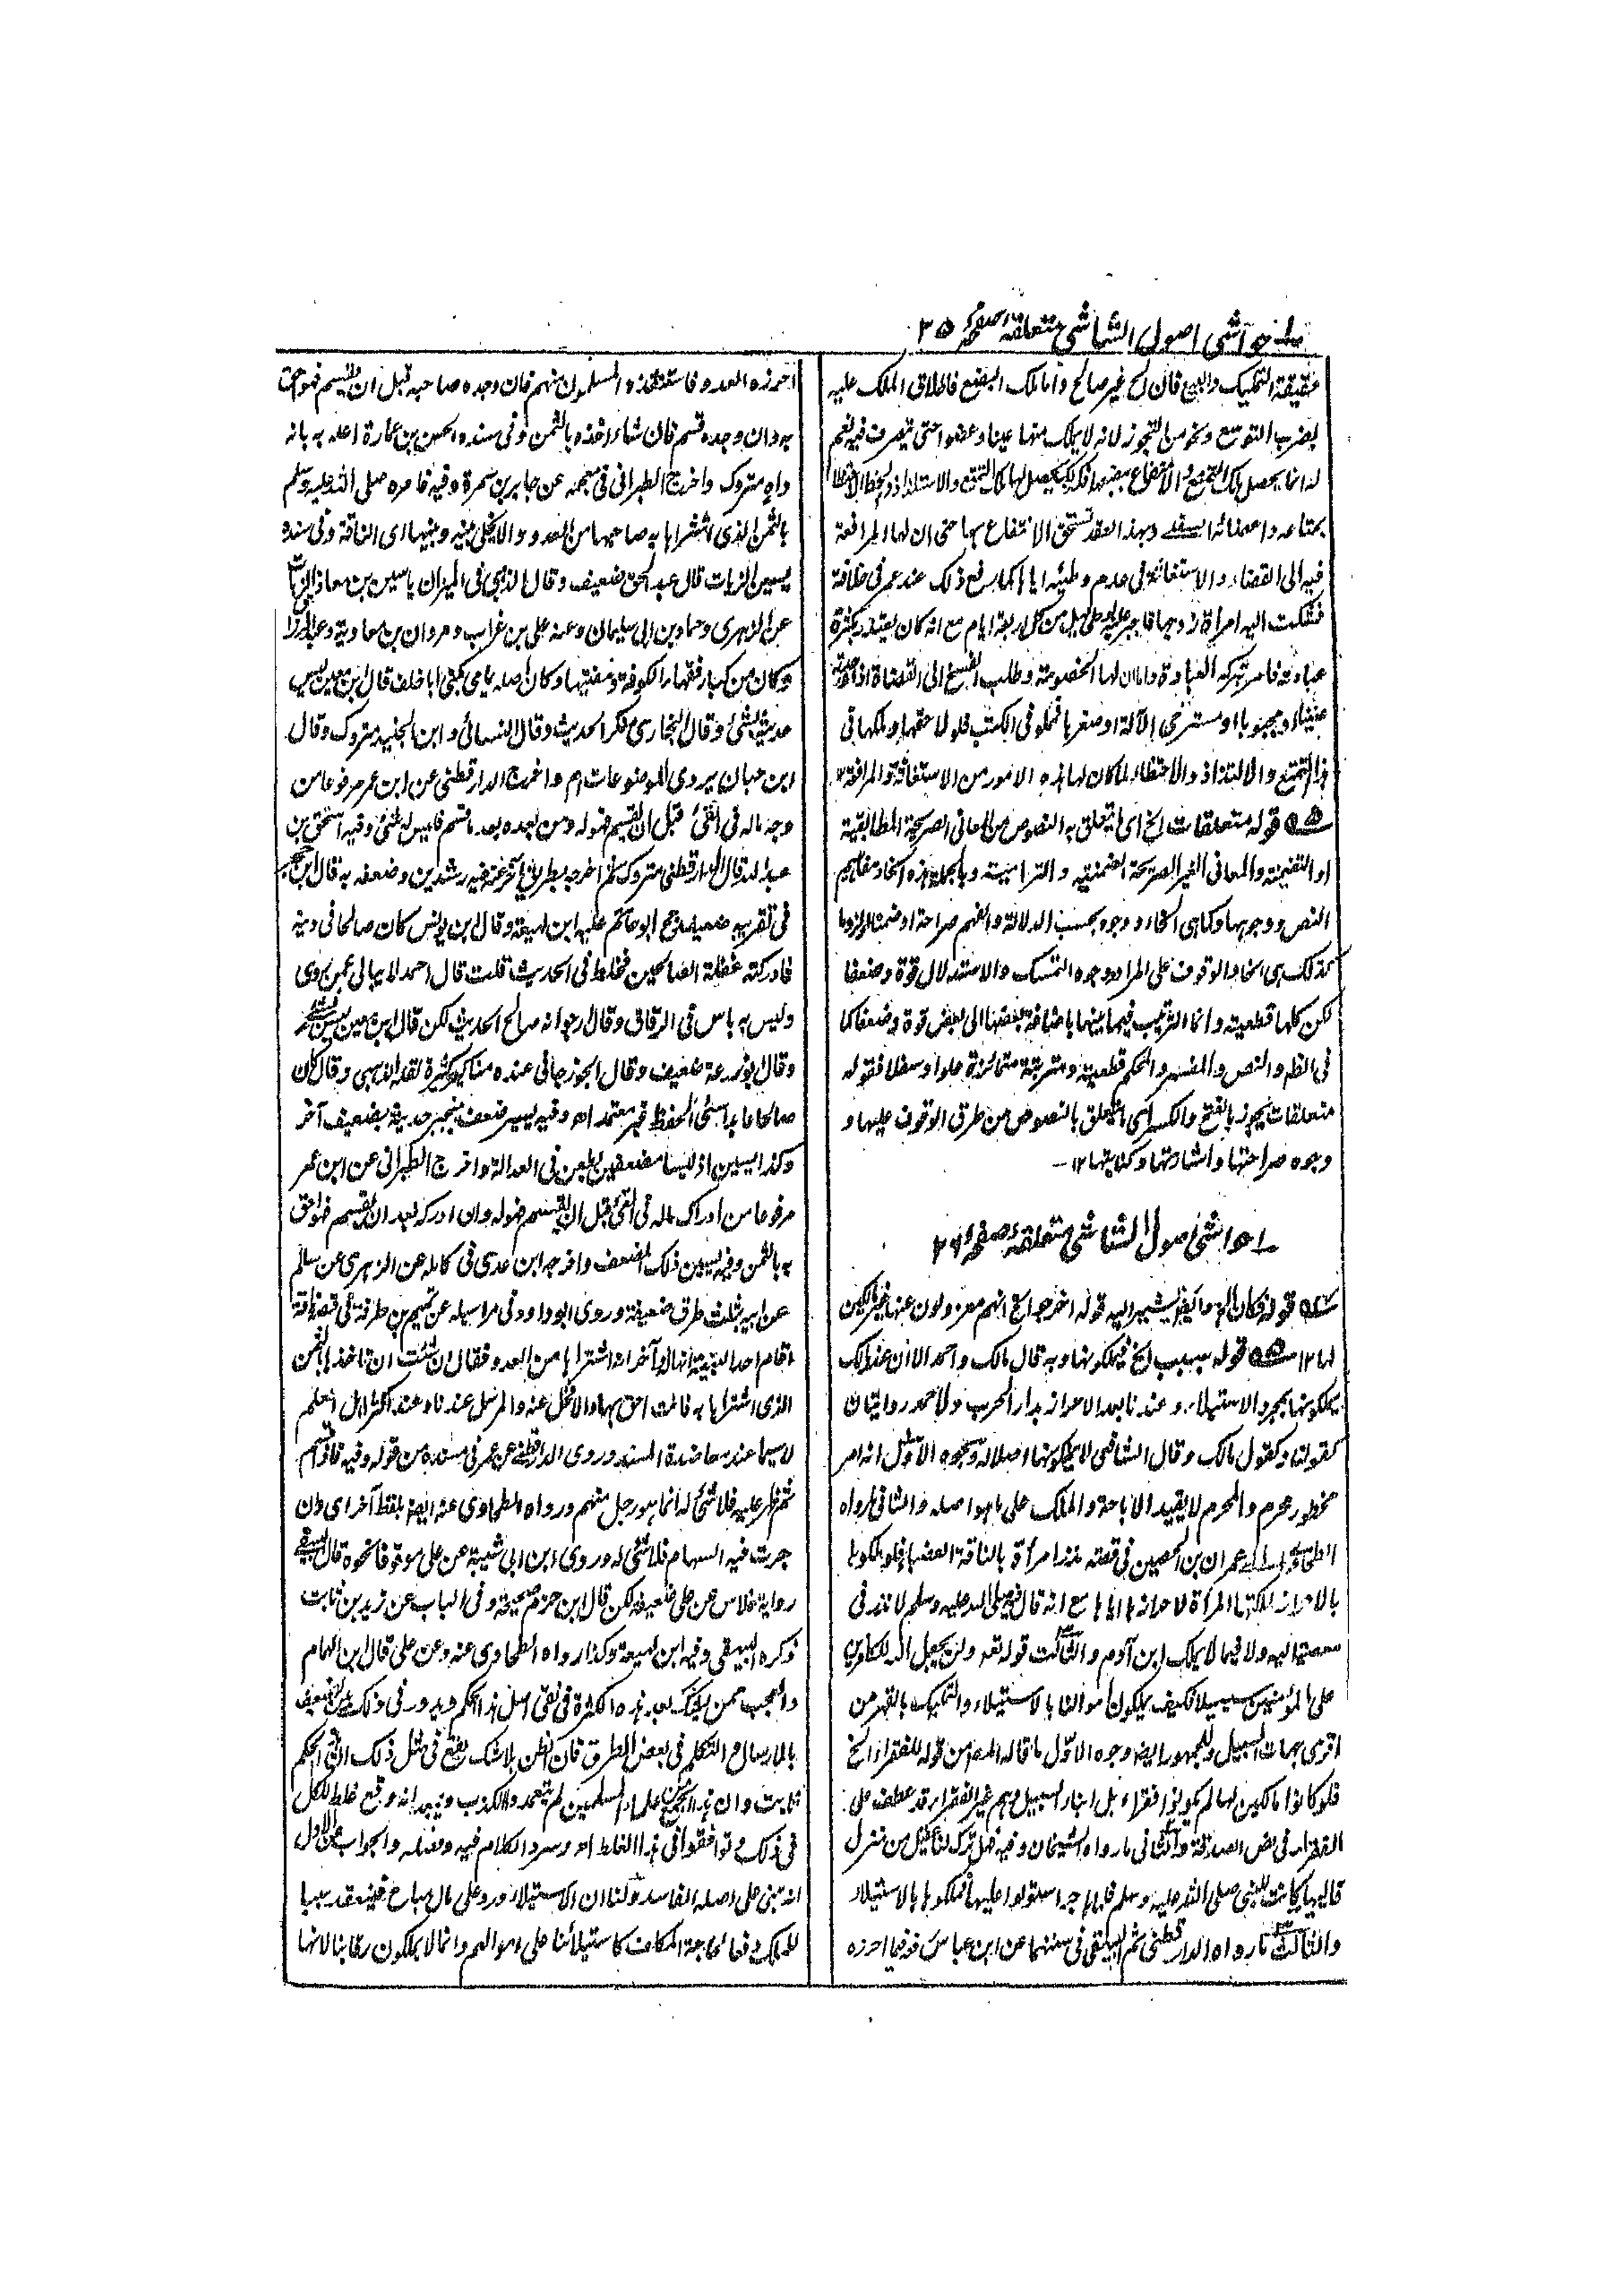 حواشی اصول الشاشی متعلقہ صفحہ ٢٥
حقيقة التمليك والبيع فان الحر غير صالح واما ملك البضع فاطلاق الملك عليه
بضرب التوسع ونحو من التجوز لانه لا يملك منها عينا وعضوا حتى يتصرف فيه نعم
له انما يحصل ملك التمتع والانتفاع ببضعها فكذلك يحصل لها ملك التمتع والاستلذاذ
بمتاعه واعضائه السفلے وبهذا العقد تستحق الانتفاع بها حتى ان لها المرافعة
فيه الى القضاء والاستغاثة فى عدم وطيئه اياها كما رفع ذلك عند عمر فى خلافة
فشكت اليه امرأة زوجها فاجبر عليه ليل من كل اربعة ايام مع انه كان يعتذر بكثرة
عبادته فامر بترك العبادة وان لها الخصومة وطلب الفسخ الى القضاة اذا
عنينا ومجبوبا او مسترخى الآلة او صغيرا فى الكتب فلولا حقها وملكها فى
هذا التمتع والالتذاذ والاحتظاء لما كان لها هذه الامور من الاستغاثة والمرافعة ١٢
٥ قوله متعلقات الخ اى ما يتعلق به النصوص من المعانى الصريحة المطابقية
او التضمنية والمعانى الغير الصريحة التضمنية والتزامية وبالجملة هذه انحاء مفاهيم
النص ووجوهها وكما هى انحاء ووجوه بحسب الدلالة والفهم صراحة او ضمنا او لزوما
كذلك هى انحاء الوقوف على المراد ووجوه التمسك والاستدلال قوة وضعفا
لكن كلها قطعية وانما الترتيب فيما بينها باضافة بعضها الى بعض قوة وضعفا كما
فى الظاهر والنص والمفسر والمحكم قطعية ومترتبة متمائزة علوا وسفلا فقوله
متعلقات يجوز بالفتح والكسر اى ما يتعلق بالنصوص من طرق الوقوف عليها و
وجوه صراحتها واشارتها وكنايتها ١٢ـ
حواشی اصول الشاشی متعلقہ صفحہ ٢٦
قوله فكان الخ وما يشير اليه قوله اخرجوا الخ انهم معزولون عنها غير مالكين
لها ١٢ ٥ قوله بسبب الخ فيملكونها وبه قال مالك واحمد الا ان عند مالك
يملكونها بمجرد الاستيلاء وعندنا بعد الاحراز بدار الحرب ولاحمد روايتان
كقولنا وكقول مالك وقال الشافعى لا يملكونها اصلا له وجوه الاول انه امر
محظور محرم والمحرم لا يفيد الاباحة والملك على ما هو اصله والثانى ما رواه
الطحاوى عمران بن الحصين فى قصته نذر امرأة بالناقة العضباء فلو ملكوها
بالاحراز لملكتها المرأة لاحرازها اياها مع انه قال فيه صلى الله عليه وسلم لا نذر فى
معصية الله ولا فيما لا يملك ابن آدم والثالث قوله تعالى ولن يجعل الله للكافرين
على المؤمنين سبيلا فكيف يملكون اموالنا بالاستيلاء والتمليك بالقهر من
اقوى جهات السبيل وللجمهور ايضا وجوه الاول ما قاله المصنف من قوله للفقراء الخ
فلو كانوا مالكين لها لم يكونوا فقراء بل ابناء السبيل وهم غير الفقراء قد عطف على
الفقراء فى نص الصدقة والثانى ما رواه الشيخان وفيه فهل ترك لنا عقيل من منزل
قاليها كانت للنبى صلى الله عليه وسلم فلما هاجر استولوا عليها فملكوها بالاستيلاء
والثالث ما رواه الدارقطنى ثم البيهقى فى سننهما عن ابن عباس فوفيما احرزه
احرزه العدو فاستنقذه المسلمون منهم فان وجده صاحبه قبل ان يقسم فهو احق
به وان وجده قسم فان شاء اخذه بالثمن وفى سنده الحسن بن عمارة اعله به بانه
واه متروك واخرج الطبرانى فى معجمه عن جابر بن سمرة وفيه فامره صلى الله عليه وسلم
بالثمن الذى اشتراها به صاحبها من العدو والا يخلى بينه وبينها اى الناقة وفى سنده
يسين الزيات قال عبد الحق ضعيف وقال الذهبى فى الميزان ياسين بن معاذ الزيات
عن الزهرى وحماد بن ابى سليمان وعنه على بن غراب ومروان بن معاوية وعبد الرزاق
وكان من كبار فقهاء الكوفة ومفتيها وكان اصله يمامى يكنى ابا خلف قال ابن معين ليس
حديثه بشئ وقال البخارى منكر الحديث وقال النسائى وابن الجنيد متروك وقال
ابن حبان يروى الموضوعات اه واخرج الدارقطنى عن ابن عمر مرفوعا من
وجد ماله فى الفئ قبل ان يقسم فهو له ومن وجده بعد ما قسم فليس له شئ وفيه اسحق بن
عبد الله قال الدارقطنى متروك ثم اخرجه بطريق آخر عنه فيه رشدين وضعفه به قال ابن حجر
فى تقريبه ضعيف رجح ابو حاتم عليه ابن لهيعة وقال ابن يونس كان صالحا فى دينه
فادركته غفلة الصالحين فخلط فى الحديث قلت قال احمد لا يبالى عمن روى
وليس به باس فى الرقاق وقال ارجو انه صالح الحديث لكن قال ابن معين ليس بشئ
وقال ابو زرعة ضعيف وقال الجوزجانى عنده مناكير كثيرة نقله الذهبى وقال كان
صالحا عابدا سئ الحفظ غير معتمد اه وفيه يسير ضعف ينجبر حديثه بضعيف آخر
وكذا ايسين اذ ليسا مضعفين بطعن فى العدالة واخرج الطبرانى عن ابن عمر
مرفوعا من ادرك ماله فى الفئ قبل ان يقسم فهو له وان ادركه بعد ان يقسم فهو احق
به بالثمن وفيه يسين ذلك المضعف واخرجه ابن عدى فى كامله عن الزهرى عن سالم
عن ابيه بثلث طرق ضعيفة وروى ابو داود فى مراسيله عن تميم بن طرفة فى قصة ناقة
اقام احد البينة انها له وآخر انه اشتراها من العدو فقال ان شئت ان تاخذها بالثمن
الذى اشتراها به فانت احق بها والا فخل عنه والمرسل عندنا وعند اكثر اهل العلم
لا سيما عند معاضدة المسند وروى الدارقطنے عن عمر فى مسنده من قوله وفيه فاقتسم
ثم ظهر عليه فلا شئ له انما هو رجل منهم ورواه الطحاوى عنه ايضا بلفظ آخر اى وان
جرت فيه السهام فلا شئ له وروى ابن ابى شيبة عن على موقوفا نحوه قال البيهقے
رواية خلاس عن على ضعيفة لكن قال ابن حزم صحيحة وفى الباب عن زيد بن ثابت
ذكره البيهقى وفيه ابن لهيعة وكذا رواه الطحاوى عنه وعن على قال ابن الهمام
والعجب ممن يشك بعد هذه الكثرة فى نفى اصل هذا الحكم ويدور فى ذلك بين تضعيف
بالارسال او التكلم فى بعض الطرق فان الظن بلا شك يقع فى مثل ذلك ان هذا الحكم
ثابت وان هذا الجمع من علماء المسلمين لم يتعمدوا الكذب ويبعد انه وقع غلط للكل
فى ذلك وتوافقوا فى هذا الغلط اه وسرد الكلام فيه وفصله والجواب عن الاول
انه مبنى على اصله الفاسد ولنا ان الاستيلاء ورد على مال مباح فينعقد سببا
للملك دفعا لحاجة المكلف كاستيلائنا على اموالهم وانما لا يملكون رقابنا لانها